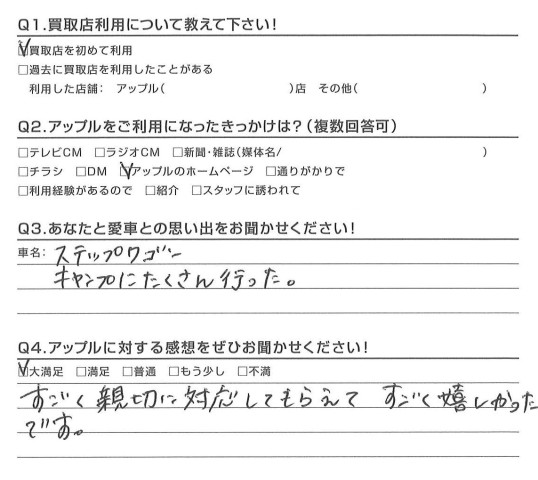 Q1.買取店利用について教えて下さい!
☑買取店を初めて利用
□過去に買取店を利用したことがある
利用した店舗: アップル( )店 その他( )
Q2.アップルをご利用になったきっかけは?(複数回答可)
□テレビCM □ラジオCM □新聞・雑誌(媒体名/ )
□チラシ □DM ☑アップルのホームページ □通りがかりで
□利用経験があるので □紹介 □スタッフに誘われて
Q3.あなたと愛車との思い出をお聞かせください!
車名: ステップワゴン
キャンプにたくさん行った。
Q4.アップルに対する感想をぜひお聞かせください!
☑大満足 □満足 □普通 □もう少し □不満
すごく親切に対応してもらえて すごく嬉しかった
です。